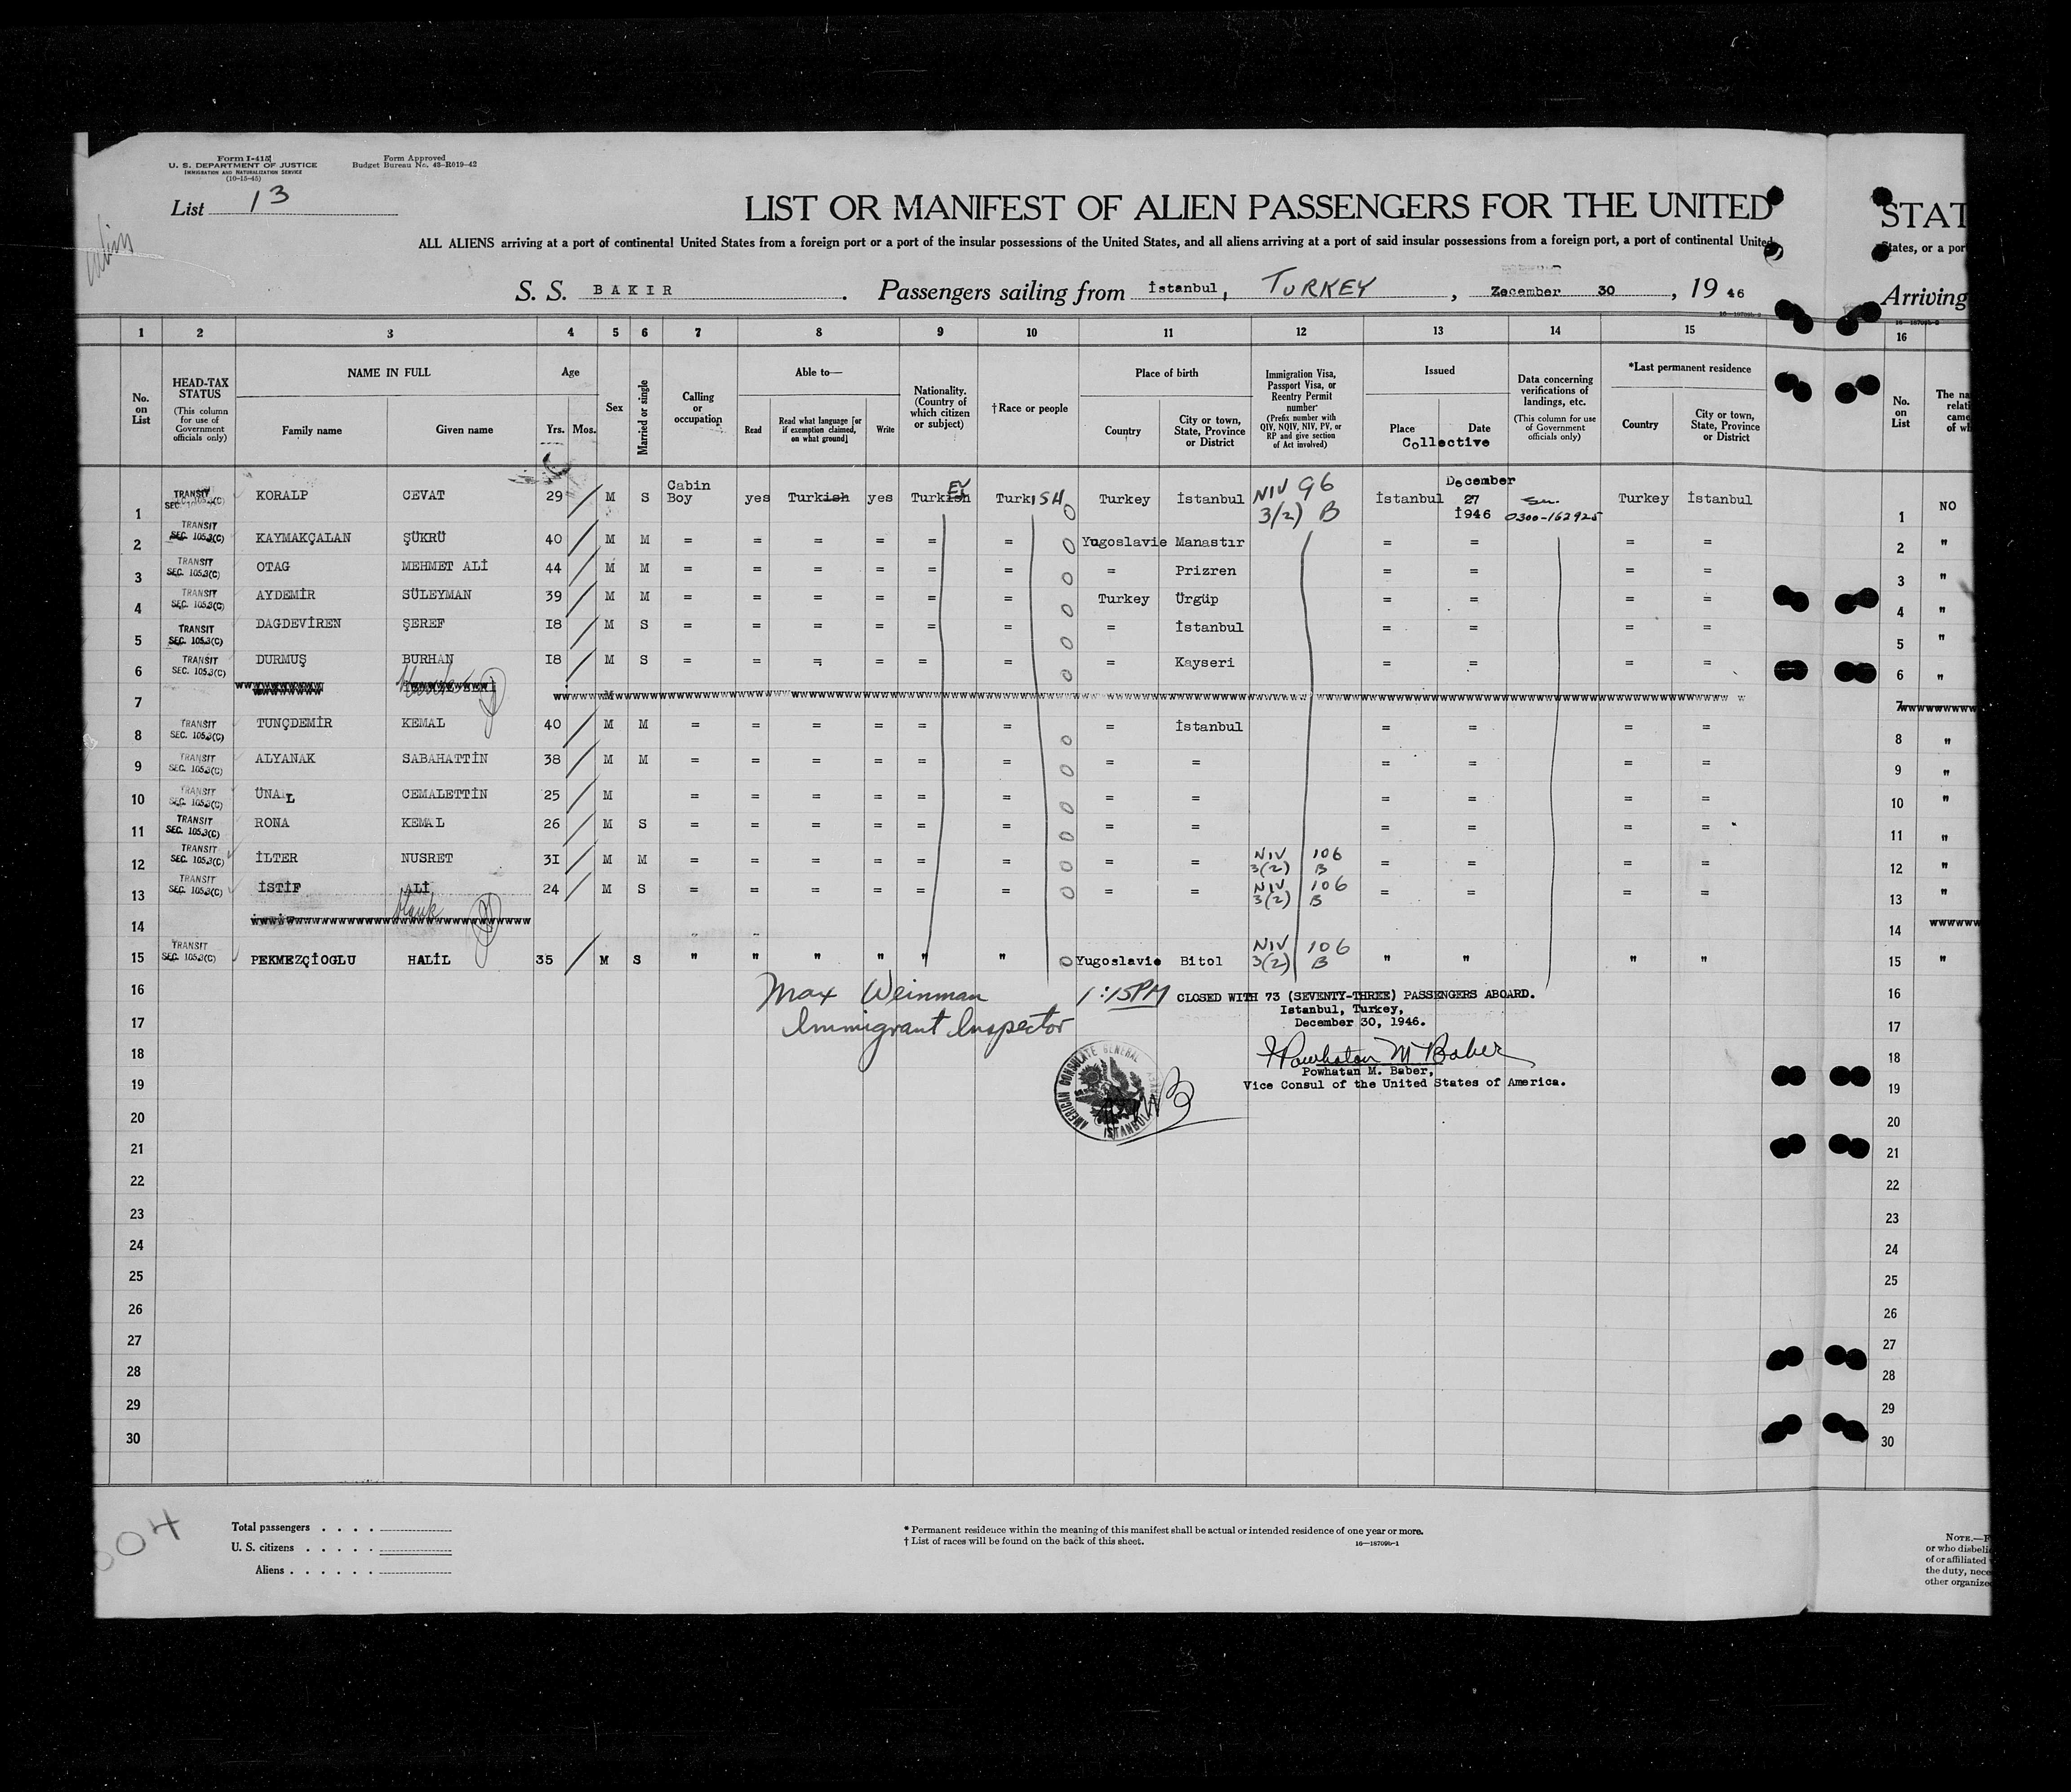 Form I-415
U. S. DEPARTMENT OF JUSTICE
IMMIGRATION AND NATURALIZATION SERVICE
(10-15-45)
Form Approved
Budget Bureau No. 43-R019-42
List 13
LIST OR MANIFEST OF ALIEN PASSENGERS FOR THE UNITED STAT
ALL ALIENS arriving at a port of continental United States from a foreign port or a port of the insular possessions of the United States, and all aliens arriving at a port of said insular possessions from a foreign port, a port of continental United States, or a por
S. S. BAKIR . Passengers sailing from İstanbul, TURKEY , Zecember 30 , 19 46 Arriving
1 2 3 4 5 6 7 8 9 10 11 12 13 14 15 16
No. on List
HEAD-TAX STATUS
(This column for use of Government officials only)
NAME IN FULL
Family name Given name
Age
Yrs. Mos.
Sex
Married or single
Calling or occupation
Able to—
Read
Read what language [or if exemption claimed, on what ground]
Write
Nationality. (Country of which citizen or subject)
†Race or people
Place of birth
Country
City or town, State, Province or District
Immigration Visa, Passport Visa, or Reentry Permit number
(Prefix number with QIV, NQIV, NIV, PV, or RP and give section of Act involved)
Issued
Place Date
Collective
Data concerning verifications of landings, etc.
(This column for use of Government officials only)
*Last permanent residence
Country
City or town, State, Province or District
No. on List
The na
relati
came
of wh
1 TRANSIT SEC. 105.3(C) KORALP CEVAT 29 M S Cabin Boy yes Turkish yes Turkish EY TurkISH 0 Turkey İstanbul NIV 96 3/(2) B İstanbul December 27 1946 0300-162925 Turkey İstanbul 1 NO
2 TRANSIT SEC. 105.3(C) KAYMAKÇALAN ŞÜKRÜ 40 M M = = = = = = 0 Yugoslavie Manastır = = = = 2 "
3 TRANSIT SEC. 105.3(C) OTAG MEHMET ALİ 44 M M = = = = = = 0 = Prizren = = = = 3 "
4 TRANSIT SEC. 105.3(C) AYDEMİR SÜLEYMAN 39 M M = = = = = = 0 Turkey Ürgüp = = = = 4 "
5 TRANSIT SEC. 105.3(C) DAGDEVİREN ŞEREF I8 M S = = = = = = 0 = İstanbul = = = = 5 "
6 TRANSIT SEC. 105.3(C) DURMUŞ BURHAN I8 M S = = = = = = 0 = Kayseri = = = = 6 "
7 M 7
8 TRANSIT SEC. 105.3(C) TUNÇDEMİR KEMAL 40 M M = = = = = = 0 = İstanbul = = = = 8 "
9 TRANSIT SEC. 105.3(C) ALYANAK SABAHATTİN 38 M M = = = = = = 0 = = = = = = 9 "
10 TRANSIT SEC. 105.3(C) ÜNAL CEMALETTİN 25 M = = = = = = 0 = = = = = = 10 "
11 TRANSIT SEC. 105.3(C) RONA KEMAL 26 M S = = = = = = 0 = = = = = = 11 "
12 TRANSIT SEC. 105.3(C) İLTER NUSRET 3I M M = = = = = = 0 = = NIV 106 3(2) B = = = = 12 "
13 TRANSIT SEC. 105.3(C) İSTİF ALİ 24 M S = = = = = = 0 = = NIV 106 3(2) B = = = = 13 "
14 blank 14
15 TRANSIT SEC. 105.3(C) PEKMEZÇİOGLU HALİL 35 M S " " " " " " 0 Yugoslavie Bitol NIV 106 3(2) B " " " " 15 "
16 Max Weinman 1:15PM CLOSED WITH 73 (SEVENTY-THREE) PASSENGERS ABOARD. 16
Istanbul, Turkey,
17 Immigrant Inspector December 30, 1946. 17
18 Powhatan M Baber 18
Powhatan M. Baber,
19 Vice Consul of the United States of America. 19
AMERICAN CONSULATE GENERAL
ISTANBUL
PMB
20 20
21 21
22 22
23 23
24 24
25 25
26 26
27 27
28 28
29 29
30 30
04
Total passengers . . . .
U. S. citizens . . . . .
Aliens . . . . . .
* Permanent residence within the meaning of this manifest shall be actual or intended residence of one year or more.
† List of races will be found on the back of this sheet.
16—18709b-1
NOTE.—F
or who disbeli
of or affiliated
the duty, nece
other organize